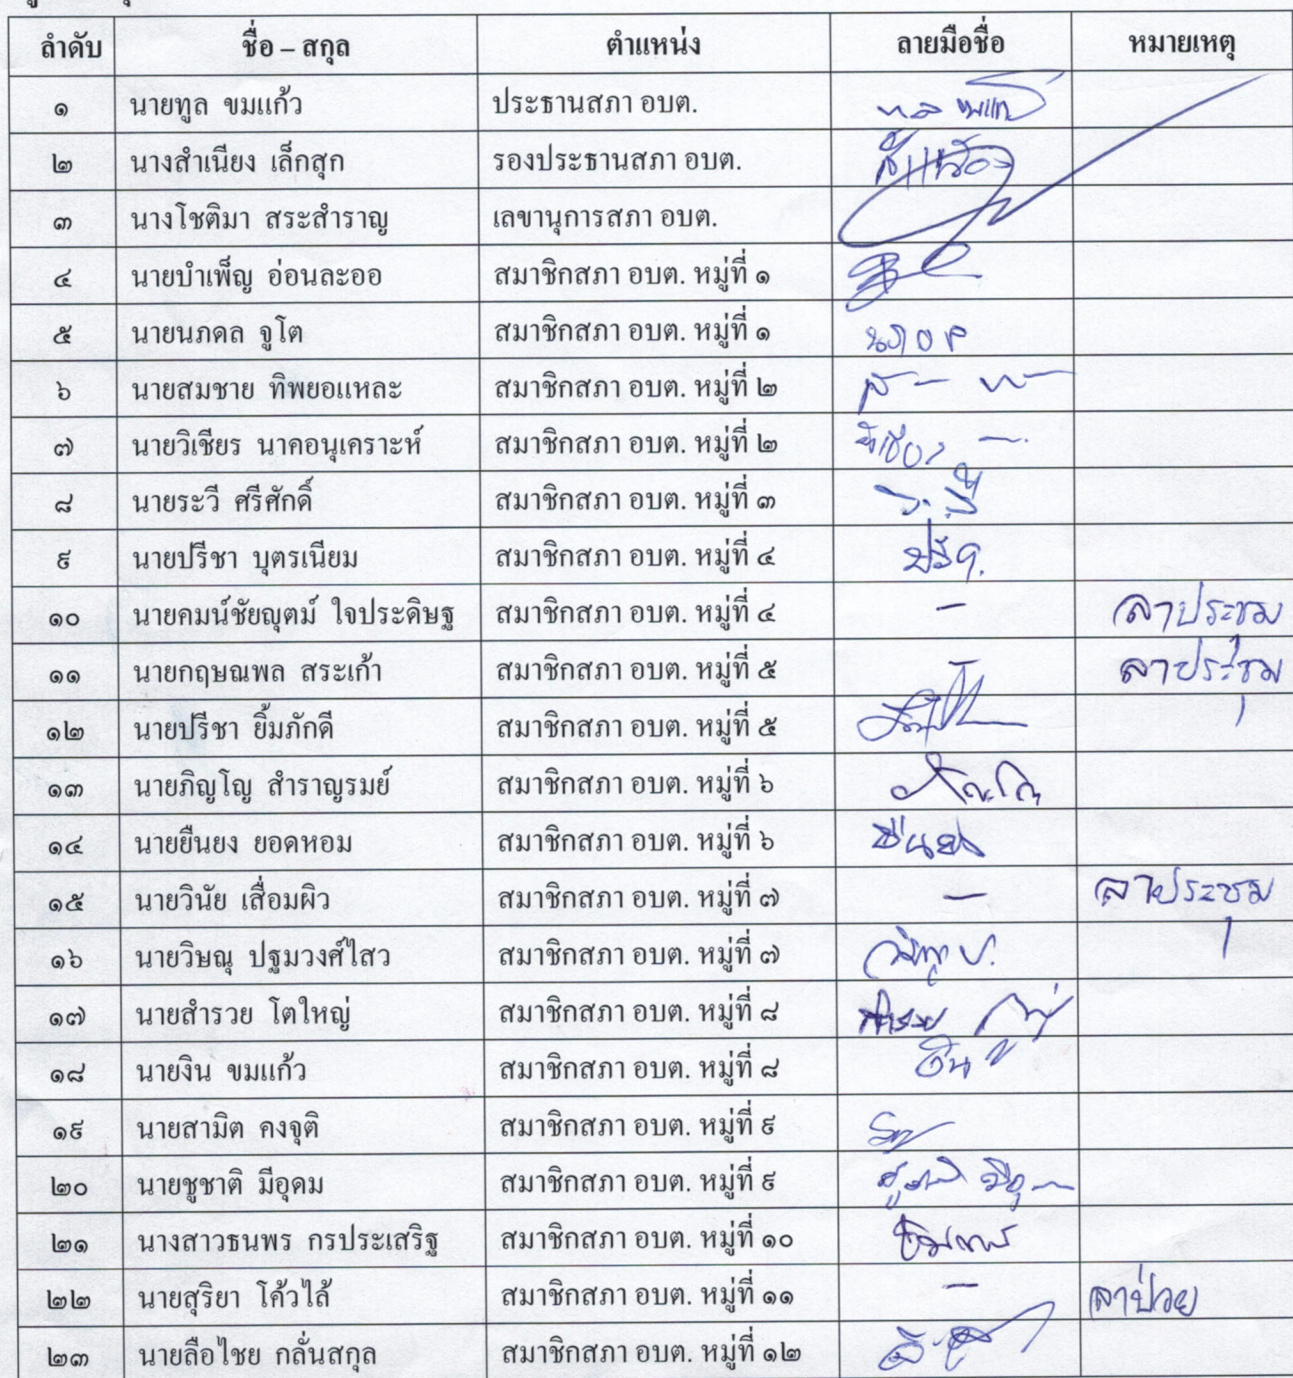 ลำดับ ชื่อ – สกุล ตำแหน่ง ลายมือชื่อ หมายเหตุ
๑ นายทูล ขมแก้ว ประธานสภา อบต.
๒ นางสำเนียง เล็กสุก รองประธานสภา อบต.
๓ นางโชติมา สระสำราญ เลขานุการสภา อบต.
๔ นายบำเพ็ญ อ่อนละออ สมาชิกสภา อบต. หมู่ที่ ๑
๕ นายนภดล จูโต สมาชิกสภา อบต. หมู่ที่ ๑
๖ นายสมชาย ทิพยอแหละ สมาชิกสภา อบต. หมู่ที่ ๒
๗ นายวิเชียร นาคอนุเคราะห์ สมาชิกสภา อบต. หมู่ที่ ๒
๘ นายระวี ศรีศักดิ์ สมาชิกสภา อบต. หมู่ที่ ๓
๙ นายปรีชา บุตรเนียม สมาชิกสภา อบต. หมู่ที่ ๔
๑๐ นายคมน์ชัยญุตม์ ใจประดิษฐ สมาชิกสภา อบต. หมู่ที่ ๔ – ลาประชุม
๑๑ นายกฤษณพล สระเก้า สมาชิกสภา อบต. หมู่ที่ ๕ – ลาประชุม
๑๒ นายปรีชา ยิ้มภักดี สมาชิกสภา อบต. หมู่ที่ ๕
๑๓ นายภิญโญ สำราญรมย์ สมาชิกสภา อบต. หมู่ที่ ๖
๑๔ นายยืนยง ยอดหอม สมาชิกสภา อบต. หมู่ที่ ๖ ยืนยง
๑๕ นายวินัย เสื่อมผิว สมาชิกสภา อบต. หมู่ที่ ๗ – ลาประชุม
๑๖ นายวิษณุ ปฐมวงศ์ไสว สมาชิกสภา อบต. หมู่ที่ ๗
๑๗ นายสำรวย โตใหญ่ สมาชิกสภา อบต. หมู่ที่ ๘ สำรวย
๑๘ นายงิน ขมแก้ว สมาชิกสภา อบต. หมู่ที่ ๘
๑๙ นายสามิต คงจุติ สมาชิกสภา อบต. หมู่ที่ ๙
๒๐ นายชูชาติ มีอุดม สมาชิกสภา อบต. หมู่ที่ ๙
๒๑ นางสาวธนพร กรประเสริฐ สมาชิกสภา อบต. หมู่ที่ ๑๐
๒๒ นายสุริยา โค้วไล้ สมาชิกสภา อบต. หมู่ที่ ๑๑ – ลาป่วย
๒๓ นายลือไชย กลั่นสกุล สมาชิกสภา อบต. หมู่ที่ ๑๒